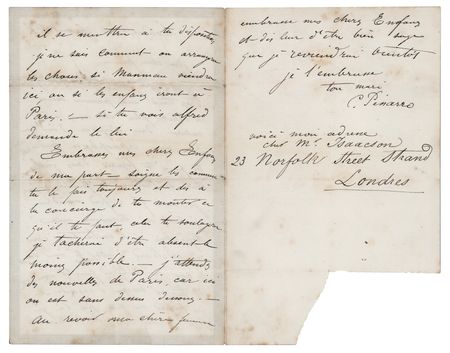 il se mettra à ta disposition
je ne sais comment on arrangera
les choses. si Maman viendra
ici ou si les enfants iront à
Paris. — si tu vois alfred
demande le lui
Embrasses nos chers Enfants
de ma part — soigne les comme
tu le fais toujours et dis à
la concierge de te monter ce
qu'il te faut. cela te soulagera
je tacherai d'être absent le
moins possible. — j'attends
des nouvelles de Paris car ici
on est sans dessus dessous. —
au revoir ma chère femme
embrasse nos chers Enfants
et dis leur d'être bien sage
que je reviendrai bientôt
je t'embrasse
ton mari
C. Pissarro
voici mon adresse
chez Mr. Isaacson
23 Norfolk Street Strand
Londres